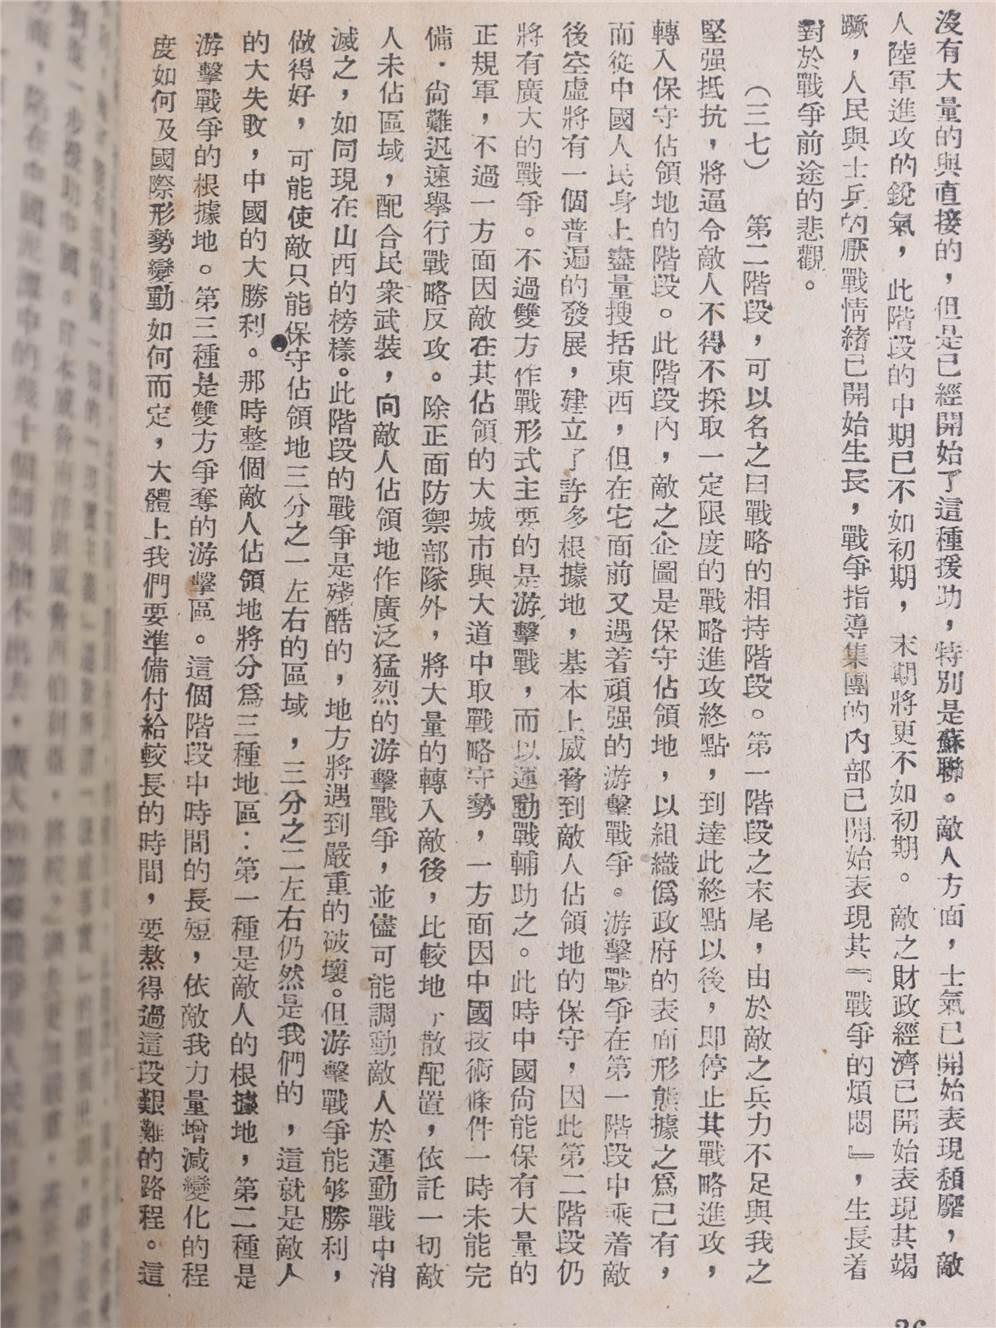 沒有大量的與直接的，但是已經開始了這種援助，特別是蘇聯。敵人方面，士氣已開始表現頹靡，敵
人陸軍進攻的銳氣，此階段的中期已不如初期，末期將更不如初期。敵之財政經濟已開始表現其竭
蹶，人民與士兵的厭戰情緒已開始生長，戰爭指導集團的內部已開始表現其『戰爭的煩悶』，生長着
對於戰爭前途的悲觀。
（三七）　第二階段，可以名之曰戰略的相持階段。第一階段之末尾，由於敵之兵力不足與我之
堅强抵抗，將逼令敵人不得不採取一定限度的戰略進攻終點，到達此終點以後，即停止其戰略進攻，
轉入保守佔領地的階段。此階段內，敵之企圖是保守佔領地，以組織僞政府的表面形態據之爲己有，
而從中國人民身上盡量搜括東西，但在宅面前又遇着頑强的游擊戰爭。游擊戰爭在第一階段中乘着敵
後空虛將有一個普遍的發展，建立了許多根據地，基本上威脅到敵人佔領地的保守，因此第二階段仍
將有廣大的戰爭。不過雙方作戰形式主要的是游擊戰，而以運動戰輔助之。此時中國尙能保有大量的
正規軍，不過一方面因敵在其佔領的大城市與大道中取戰略守勢，一方面因中國技術條件一時未能完
備．尙難迅速舉行戰略反攻。除正面防禦部隊外，將大量的轉入敵後，比較地分散配置，依託一切敵
人未佔區域，配合民衆武裝，向敵人佔領地作廣泛猛烈的游擊戰爭，並儘可能調動敵人於運動戰中消
滅之，如同現在山西的榜樣。此階段的戰爭是殘酷的，地方將遇到嚴重的破壞。但游擊戰爭能够勝利，
做得好，可能使敵只能保守佔領地三分之一左右的區域，三分之二左右仍然是我們的，這就是敵人
的大失敗，中國的大勝利。那時整個敵人佔領地將分爲三種地區：第一種是敵人的根據地，第二種是
游擊戰爭的根據地。第三種是雙方爭奪的游擊區。這個階段中時間的長短，依敵我力量增減變化的程
度如何及國際形勢變動如何而定，大體上我們要準備付給較長的時間，要熬得過這段艱難的路程。這